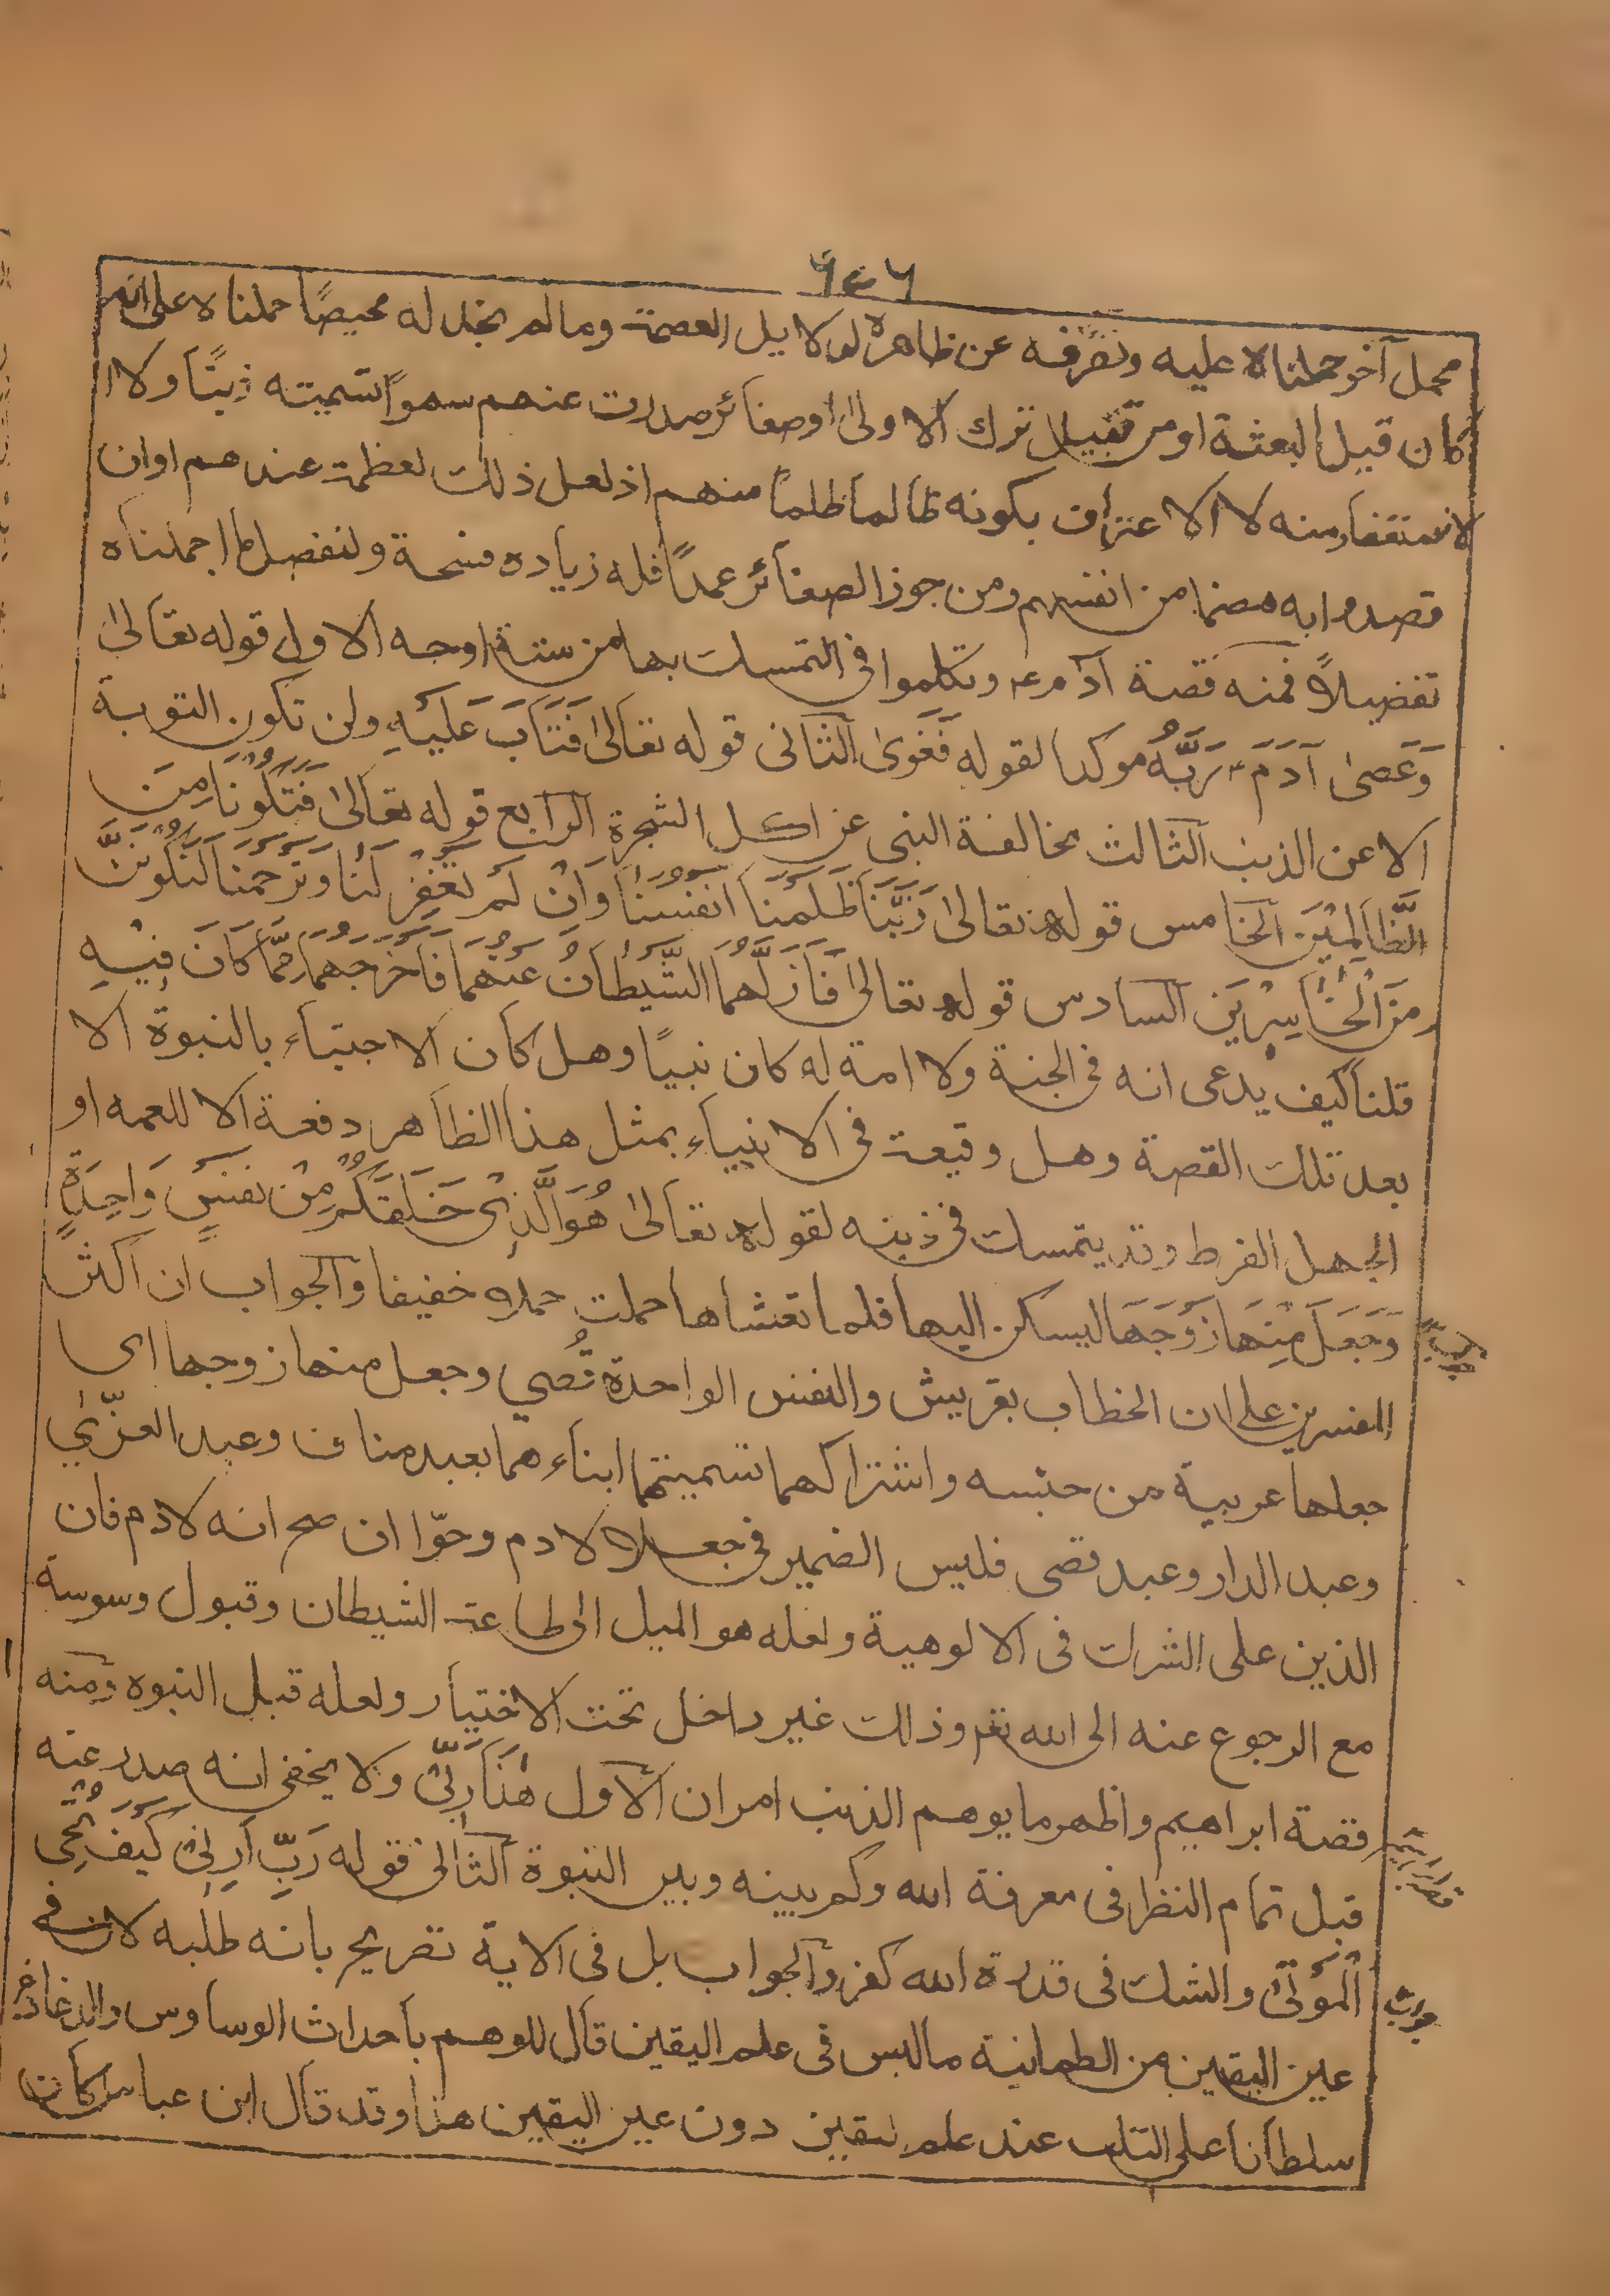 ٦٤٦
محمل آخر حملناه عليه ونصرفه عن ظاهره لدلايل العصمة وما لم نجد له محيصًا حملناه على انه
كان قبل البعثة او من قبيل ترك الاولى او صغائر صدرت عنهم سهواً تسميته ذنبًا ولا
لاستغفار منه لا الاعتراف بكونه ظالما ظلماً منهم اذ لعل ذلك لعظمة عندهم او ان
قصدوا به هضما من انفسهم ومن جوز الصغائر عمداً فله زياده فسحة ولنفصل ما اجملناه
تفصيلاً فمنه قصة آدم ع وتكلموا في التمسك بها من ستة اوجه الاول قوله تعالى
وَعَصىٰ آدَمَ رَبَّهُ موكدا لقوله فَغَوىٰ الثاني قوله تعالى فَتَابَ عَلَيْهِ ولن تكون التوبة
الا عن الذنب الثالث مخالفة النهي عن اكل الشجرة الرابع قوله تعالى فَتَكُوْنَا مِنَ
الظَّالِمِيْنَ الخامس قوله تعالى رَبَّنَا ظَلَمْنَا اَنْفُسَنَا وَاِنْ لَمْ تَغْفِرْ لَنَا وَتَرْحَمْنَا لَنَكُوْنَنَّ
مِنَ الْخَاسِرِيْنَ السادس قوله تعالى فَاَزَلَّهُمَا الشَّيْطَانُ عَنْهَا فَاَخْرَجَهُمَا مِمَّا كَانَ فِيْهِ
قلنا كيف يدعى انه في الجنة ولا امة له كان نبيًا وهل كان الاجتباء بالنبوة الا
بعد تلك القصة وهل وقيعة في الانبياء بمثل هذا الظاهر دفعة الا للعمه او
الجهل المفرط وقد يتمسك في ذنبه لقوله تعالى هُوَ الَّذِيْ خَلَقَكُمْ مِنْ نَفْسٍ وَاحِدَةٍ
وَجَعَلَ مِنْهَا زَوْجَهَا ليسكن اليها فلما تغشاها حملت حملا خفيفا والجواب ان اكثر
المفسرين على ان الخطاب بقريش والنفس الواحدة قُصي وجعل منها زوجها اى
جعلها عربية من جنسه واشتراكهما تسميتهما ابناءهما بعبد مناف وعبد العزّىٰ
وعبد الدار وعبد قصى فليس الضمير في جعلا لادم وحوّا ان صح انه لادم فان
الذين على الشرك في الالوهية ولعله هو الميل الى طاعة الشيطان وقبول وسوسة
مع الرجوع عنه الى الله تعم وذلك غير داخل تحت الاختيار ولعله قبل النبوه ومنه
قصة ابراهيم واظهر ما يوهم الذنب امران الاول هٰذَا رَبِّيْ ولا يخفى انه صدر عنه
قبل تمام النظر في معرفة الله وكم بينه وبين النبوة الثاني قوله رَبِّ اَرِنِيْ كَيْفَ تُحْيِ
الْمَوْتىٰ والشك في قدرة الله كفر والجواب بل في الاية تصريح بانه طلبه لان في
عين اليقين من الطمانية ما ليس في علم اليقين قال للوهم باحداث الوساوس والدغادغ
سلطانا على القلب عند علم ليقين دون عين اليقين هذا وقد قال ابن عباس كان
قصه ابراهيم
جواب